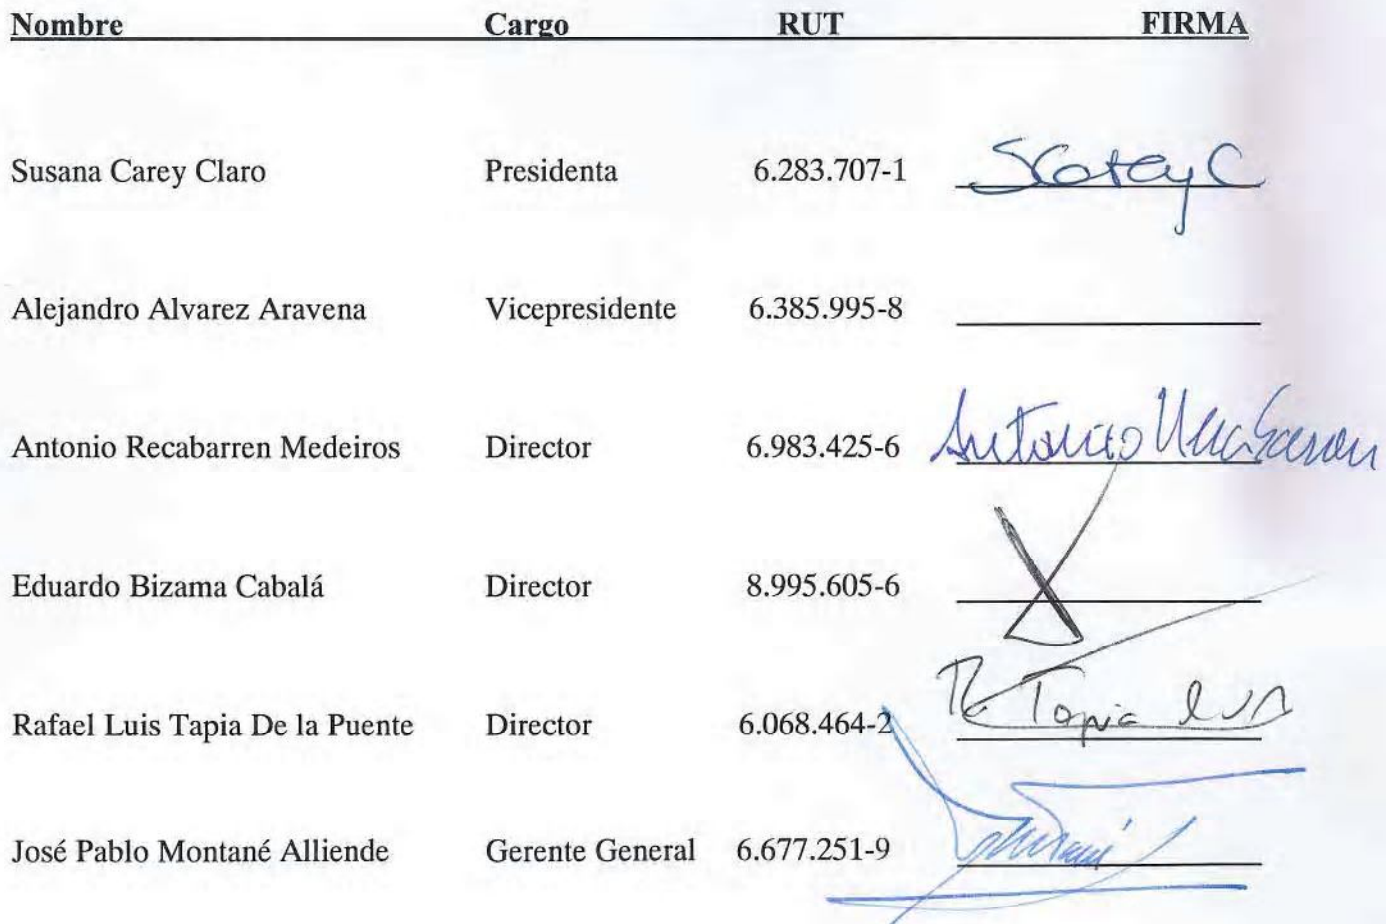 Nombre Cargo RUT FIRMA
Susana Carey Claro Presidenta 6.283.707-1 SCareyC
Alejandro Alvarez Aravena Vicepresidente 6.385.995-8
Antonio Recabarren Medeiros Director 6.983.425-6 Antonio
Eduardo Bizama Cabalá Director 8.995.605-6
Rafael Luis Tapia De la Puente Director 6.068.464-2 Tapia
José Pablo Montané Alliende Gerente General 6.677.251-9